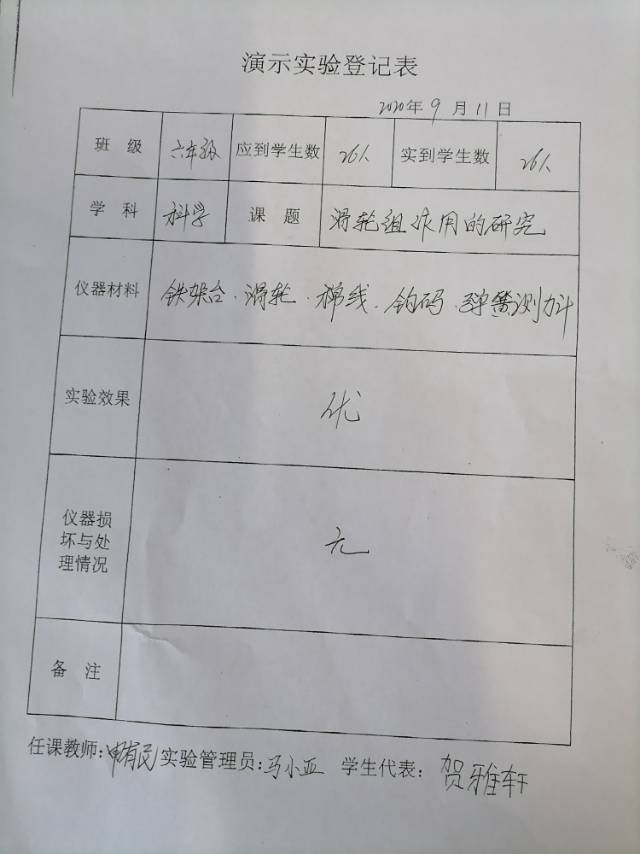 演示实验登记表
2020年9月11日
班 级 六年级 应到学生数 26人 实到学生数 26人
学 科 科学 课 题 滑轮组作用的研究
仪器材料 铁架台·滑轮·棉线·钩码·弹簧测力计
实验效果 优
仪器损
坏与处
理情况
无
备 注
任课教师:申有民 实验管理员:马小亚 学生代表:贺雅轩